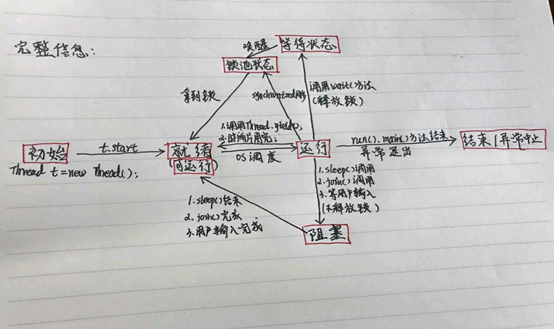 完整信息:
唤醒 等待状态
锁池状态
拿到锁
synchronized
调用wait()方法
(释放锁)
1.调用Thread.yield();
2.时间片用完;
初始
t.start
就绪
(可运行)
OS调度
运行
run().main()方法结束
异常退出
结束|异常中止
Thread t=new Thread();
1.sleep()结束
2.join()完成
3.用户输入完成
1.sleep()调用
2.join()调用
3.等用户输入
(不释放锁)
阻塞